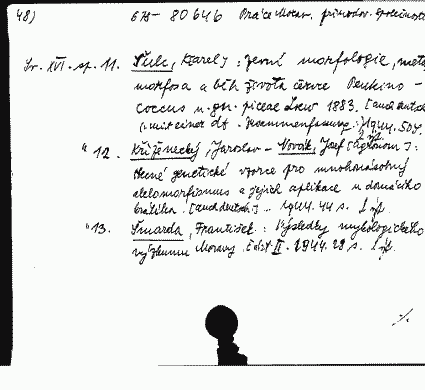 48) 675-80646 Práce Morav. přírodov. společnosti
Sv. XVI. sp. 11. Šulc, Karel: Zevní morfologie, meta
morfosa a běh života červce Peukino-
coccus n. gn. piceae Löw 1883. [auch deutsch]
mit einer dt. Zusammenfassung 1944. 50 s.
" 12. Kříženecký, Jaroslav - Novák, Josef
genetické vzorce pro mnohonásobný
alelomorfismus a jejich aplikace u domácího
králíka. [auch deutsch] .. 1944. 44 s.
"13. Šmarda, František: Výsledky mykologického
výzkumu Moravy. část II. - 1944. 28 s.